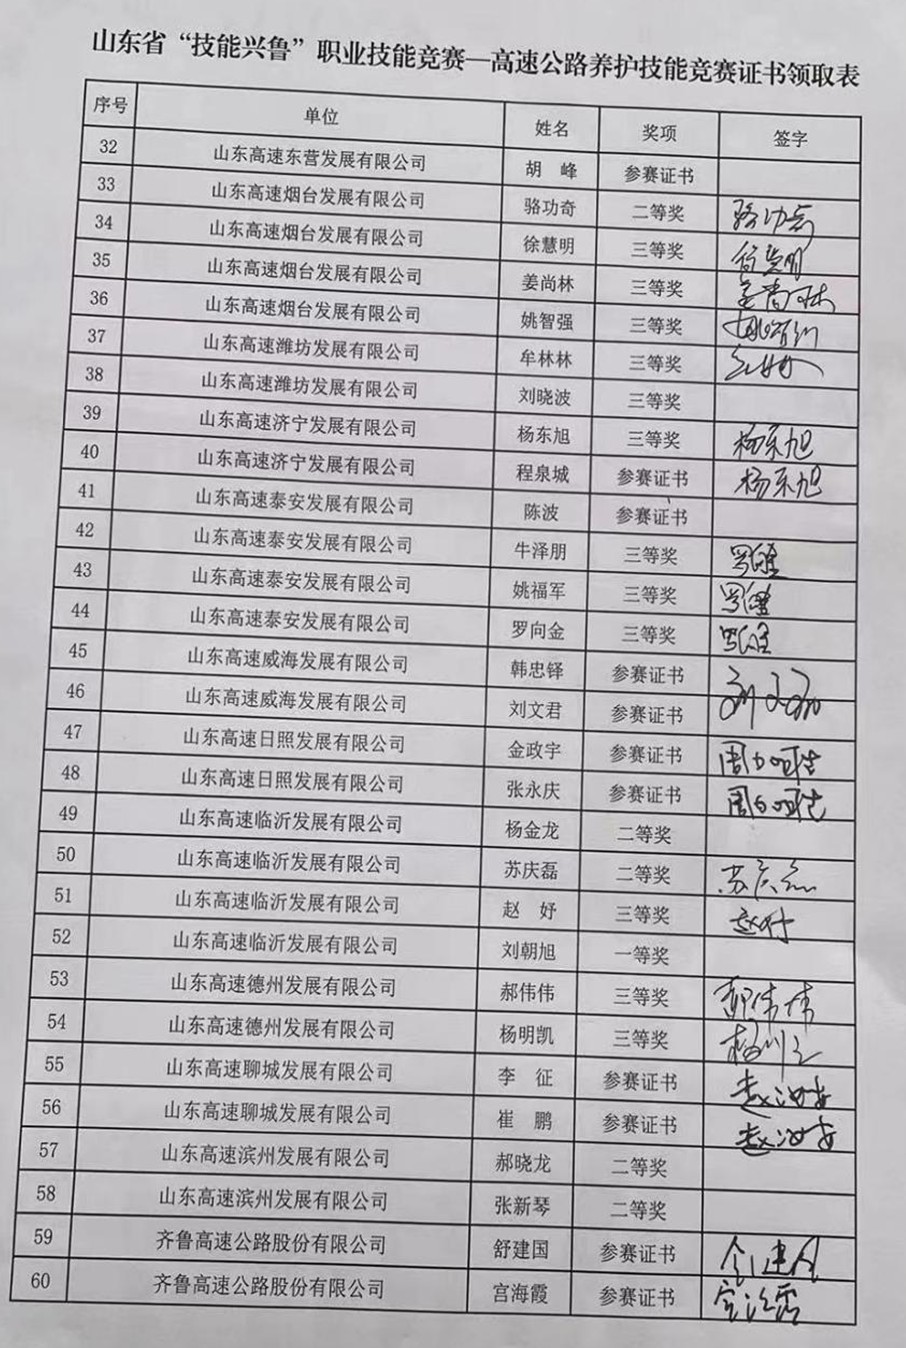 山东省“技能兴鲁”职业技能竞赛—高速公路养护技能竞赛证书领取表
序号 单位 姓名 奖项 签字
32 山东高速东营发展有限公司 胡 峰 参赛证书
33 山东高速烟台发展有限公司 骆功奇 二等奖 骆功奇
34 山东高速烟台发展有限公司 徐慧明 三等奖
35 山东高速烟台发展有限公司 姜尚林 三等奖 姜尚林
36 山东高速烟台发展有限公司 姚智强 三等奖
37 山东高速潍坊发展有限公司 牟林林 三等奖
38 山东高速潍坊发展有限公司 刘晓波 三等奖
39 山东高速济宁发展有限公司 杨东旭 三等奖 杨东旭
40 山东高速济宁发展有限公司 程泉城 参赛证书 杨东旭
41 山东高速泰安发展有限公司 陈波 参赛证书
42 山东高速泰安发展有限公司 牛泽朋 三等奖
43 山东高速泰安发展有限公司 姚福军 三等奖
44 山东高速泰安发展有限公司 罗向金 三等奖
45 山东高速威海发展有限公司 韩忠铎 参赛证书
46 山东高速威海发展有限公司 刘文君 参赛证书
47 山东高速日照发展有限公司 金政宇 参赛证书
48 山东高速日照发展有限公司 张永庆 参赛证书
49 山东高速临沂发展有限公司 杨金龙 二等奖
50 山东高速临沂发展有限公司 苏庆磊 二等奖 苏庆磊
51 山东高速临沂发展有限公司 赵 妤 三等奖 赵妤
52 山东高速临沂发展有限公司 刘朝旭 一等奖
53 山东高速德州发展有限公司 郝伟伟 三等奖 郝伟伟
54 山东高速德州发展有限公司 杨明凯 三等奖
55 山东高速聊城发展有限公司 李 征 参赛证书
56 山东高速聊城发展有限公司 崔 鹏 参赛证书
57 山东高速滨州发展有限公司 郝晓龙 二等奖
58 山东高速滨州发展有限公司 张新琴 二等奖
59 齐鲁高速公路股份有限公司 舒建国 参赛证书
60 齐鲁高速公路股份有限公司 宫海霞 参赛证书 宫海霞